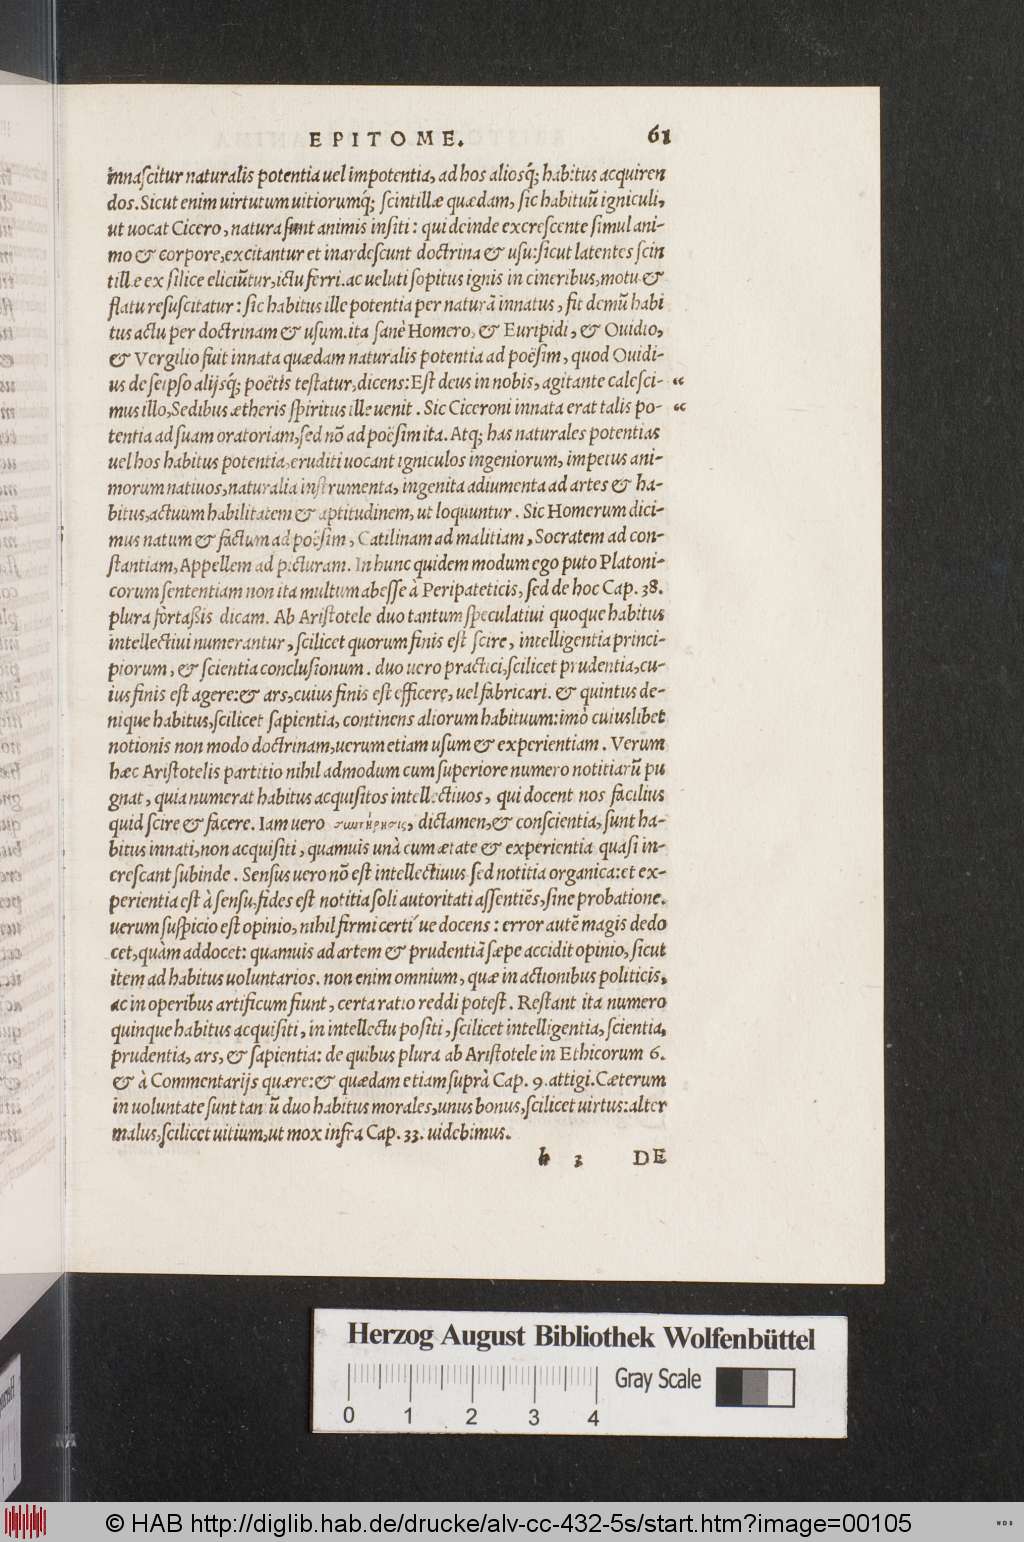 EPITOME. 61
innascitur naturalis potentia uel impotentia, ad hos aliosq́; habitus acquiren
dos. Sicut enim uirtutum uitiorumq́; scintillæ quædam, sic habituũ igniculi,
ut uocat Cicero, natura sunt animis insiti: qui deinde excrescente simul ani-
mo & corpore, excitantur et inardescunt doctrina & usu: sicut latentes scin
tillæ ex silice eliciũtur, ictu ferri. ac ueluti sopitus ignis in cineribus, motu &
flatu resuscitatur: sic habitus ille potentia per naturã innatus, fit demũ habi
tus actu per doctrinam & usum. ita sanè Homero, & Euripidi, & Ouidio,
& Vergilio fuit innata quædam naturalis potentia ad poësim, quod Ouidi-
us de seipso alijsq́; poëtis testatur, dicens: Est deus in nobis, agitante calesci- “
mus illo, Sedibus ætheris spiritus ille uenit. Sic Ciceroni innata erat talis po- “
tentia ad suam oratoriam, sed nõ ad poësim ita. Atq; has naturales potentias
uel hos habitus potentia, eruditi uocant igniculos ingeniorum, impetus ani-
morum natiuos, naturalia instrumenta, ingenita adiumenta ad artes & ha-
bitus, actuum habilitatem & aptitudinem, ut loquuntur. Sic Homerum dici-
mus natum & factum ad poësim, Catilinam ad malitiam, Socratem ad con-
stantiam, Appellem ad picturam. In hunc quidem modum ego puto Platoni-
corum sententiam non ita multum abesse à Peripateticis, sed de hoc Cap. 38.
plura fortaßis dicam. Ab Aristotele duo tantum speculatiui quoque habitus
intellectiui numerantur, scilicet quorum finis est scire, intelligentia princi-
piorum, & scientia conclusionum. duo uero practici, scilicet prudentia, cu-
ius finis est agere: & ars, cuius finis est efficere, uel fabricari. & quintus de-
nique habitus, scilicet sapientia, continens aliorum habituum: imò cuiuslibet
notionis non modo doctrinam, uerum etiam usum & experientiam. Verum
hæc Aristotelis partitio nihil admodum cum superiore numero notitiarũ pu
gnat, quia numerat habitus acquisitos intellectiuos, qui docent nos facilius
quid scire & facere. Iam uero συντήρησις, dictamen, & conscientia, sunt ha-
bitus innati, non acquisiti, quamuis unà cum ætate & experientia quasi in-
crescant subinde. Sensus uero nõ est intellectiuus sed notitia organica: et ex-
perientia est à sensu, fides est notitia soli autoritati assentiẽs, sine probatione.
uerum suspicio est opinio, nihil firmi certi´ue docens: error autẽ magis dedo
cet, quàm addocet: quamuis ad artem & prudentiã sæpe accidit opinio, sicut
item ad habitus uoluntarios. non enim omnium, quæ in actionibus politicis,
ac in operibus artificum fiunt, certa ratio reddi potest. Restant ita numero
quinque habitus acquisiti, in intellectu positi, scilicet intelligentia, scientia,
prudentia, ars, & sapientia: de quibus plura ab Aristotele in Ethicorum 6.
& à Commentarijs quære: & quædam etiam suprà Cap. 9. attigi. Cæterum
in uoluntate sunt tantũ duo habitus morales, unus bonus, scilicet uirtus: alter
malus, scilicet uitium, ut mox infra Cap. 33. uidebimus.
h 3 DE
Herzog August Bibliothek Wolfenbüttel
Gray Scale
0 1 2 3 4
© HAB http://diglib.hab.de/drucke/alv-cc-432-5s/start.htm?image=00105